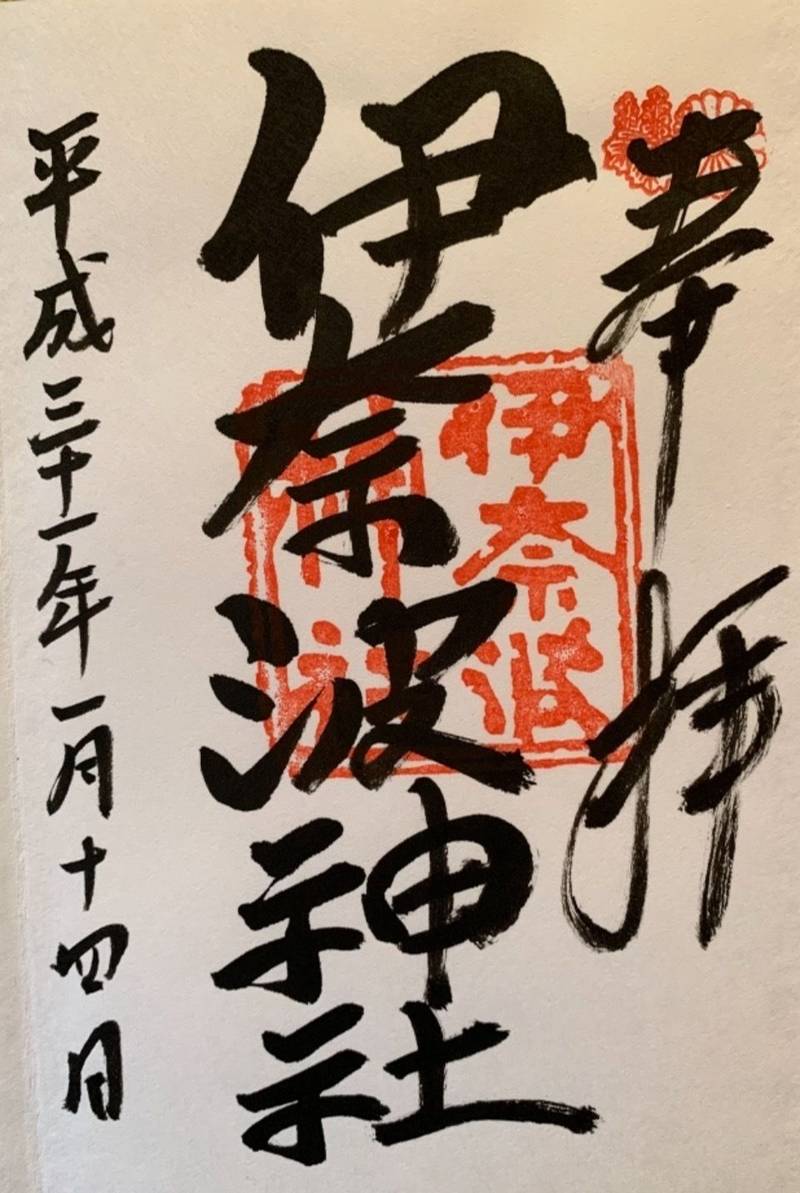 奉拝
伊奈波神社
伊奈波
神社
平成三十一年一月十四日